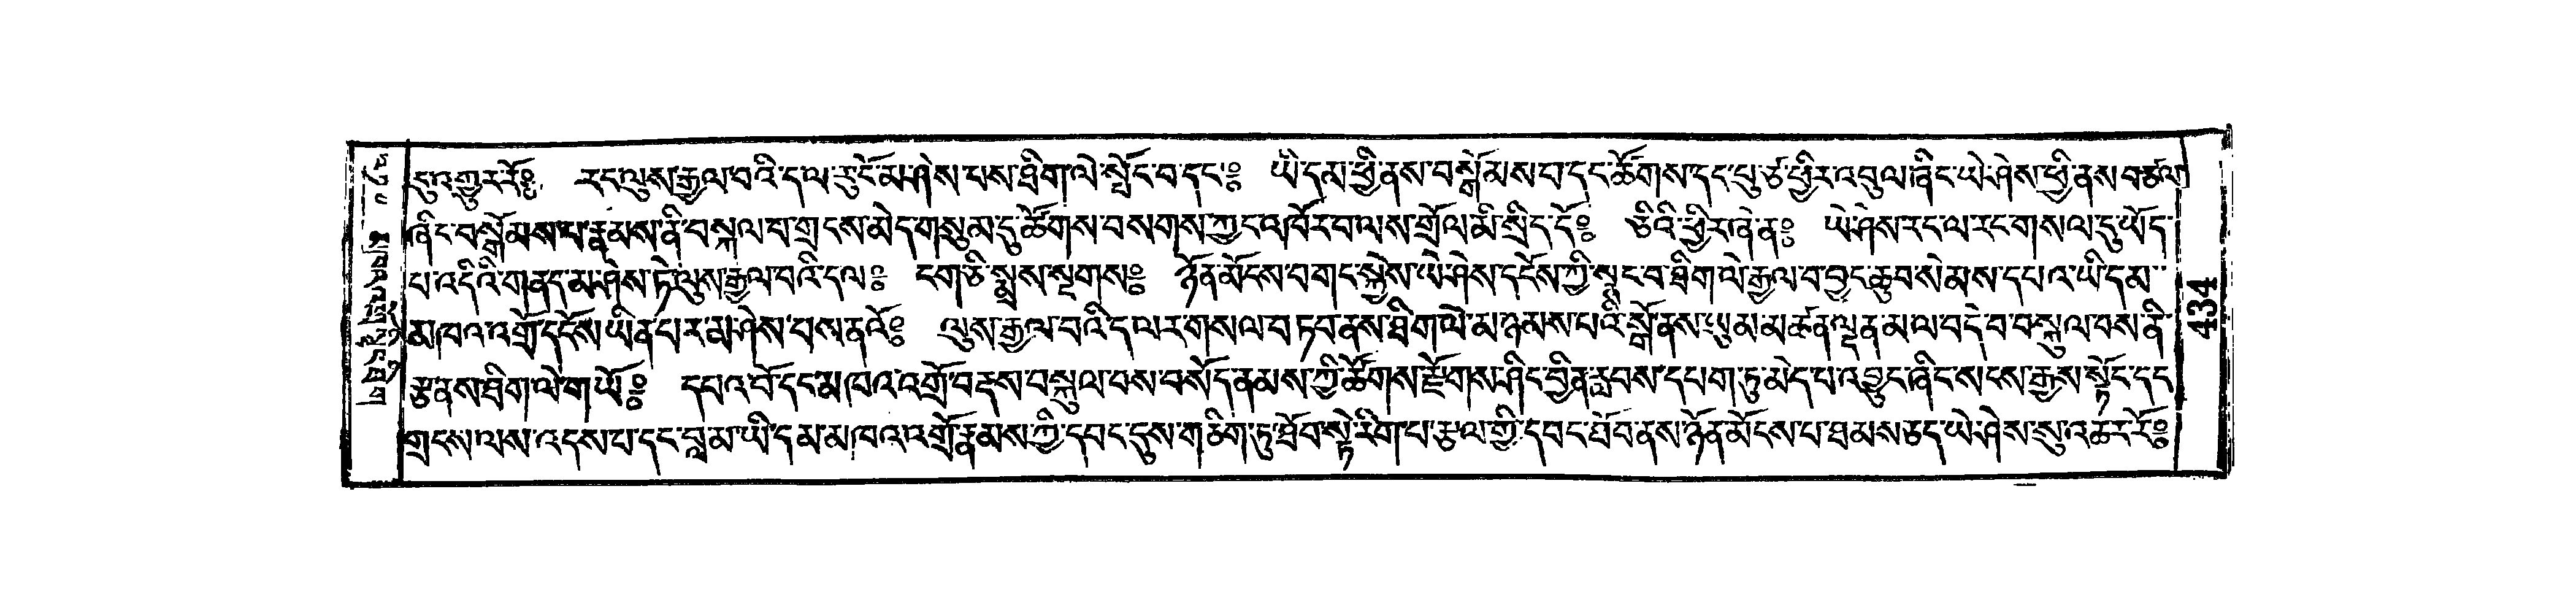 དུ་འགྱུར་རོ༔ རང་ལུས་རྒྱལ་བའི་ད་ལ་རུ་ངོ་མ་ཤེས་པས་ཐིག་ལེ་སྤོང་བ་དང༔ ཡི་དམ་ཕྱི་ནས་བསྒོམས་པ་དང་ཚོགས་དང་པུ་ཙ་ཕྱིར་འབུལ་ཞིང་ཡེ་ཤེས་ཕྱི་ནས་བཙལ།
ཞིང་བསྒོམས་པ་རྣམས་ནི་བསྐལ་པ་གྲངས་མེད་གསུམ་དུ་ཚོགས་བསགས་ཀྱང་འཁོར་བ་ལས་གྲོལ་མི་སྲིད་དོ༔ ཅིའི་ཕྱིར་ཞེ་ན༔ ཡེ་ཤེས་རང་ལ་རང་གསལ་དུ་ཡོད་
པ་འདིའི་གནད་མ་ཤེས་ཏེ་ལུས་རྒྱལ་བའི་དལ༔ ངག་ཅི་སྨྲས་སྔགས༔ ཉོན་མོངས་བ་གང་སྐྱེས་ཡེ་ཤེས་དངོས་ཀྱི་སྣང་བ་ཐིག་ལེ་རྒྱལ་བ་བྱང་ཆུབ་སེམས་དཔའ་ཡི་དམ་
མཁའ་འགྲོ་དངོས་ཡིན་པར་མ་ཤེས་པས་ནའོ༔ ལུས་རྒྱལ་བའི་ད་ལར་གསལ་བ་ཏབ་ནས་ཐིག་ལེ་མ་ཉམས་པའི་སྒོ་ནས་ཡུམ་མཚན་ལྡན་མ་ལ་བདེ་བ་བསྐུལ་བས་ནི་
རྩ་ནས་ཐིག་ལེ་གཡོ༔ དཔའ་བོ་དང་མཁའ་འགྲོ་བརྡས་བསྐུལ་བས་བསོད་ནམས་ཀྱི་ཚོགས་རྫོགས་ཤིང་བྱིན་རླབས་དཔག་ཏུ་མེད་པ་འབྱུང་ཞིང་སངས་རྒྱས་སྟོང་དང་
གྲངས་ལས་འདས་པ་དང་བླ་མ་ཡི་དམ་མཁའ་འགྲོ་རྣམས་ཀྱི་དབང་དུས་གཅིག་ཏུ་ཐོབ་སྟེ་རིག་པ་རྩལ་གྱི་དབང་ཐོབ་ནས་ཉོན་མོངས་པ་ཐམས་ཅད་ཡེ་ཤེས་སུ་འཆར་རོ༔